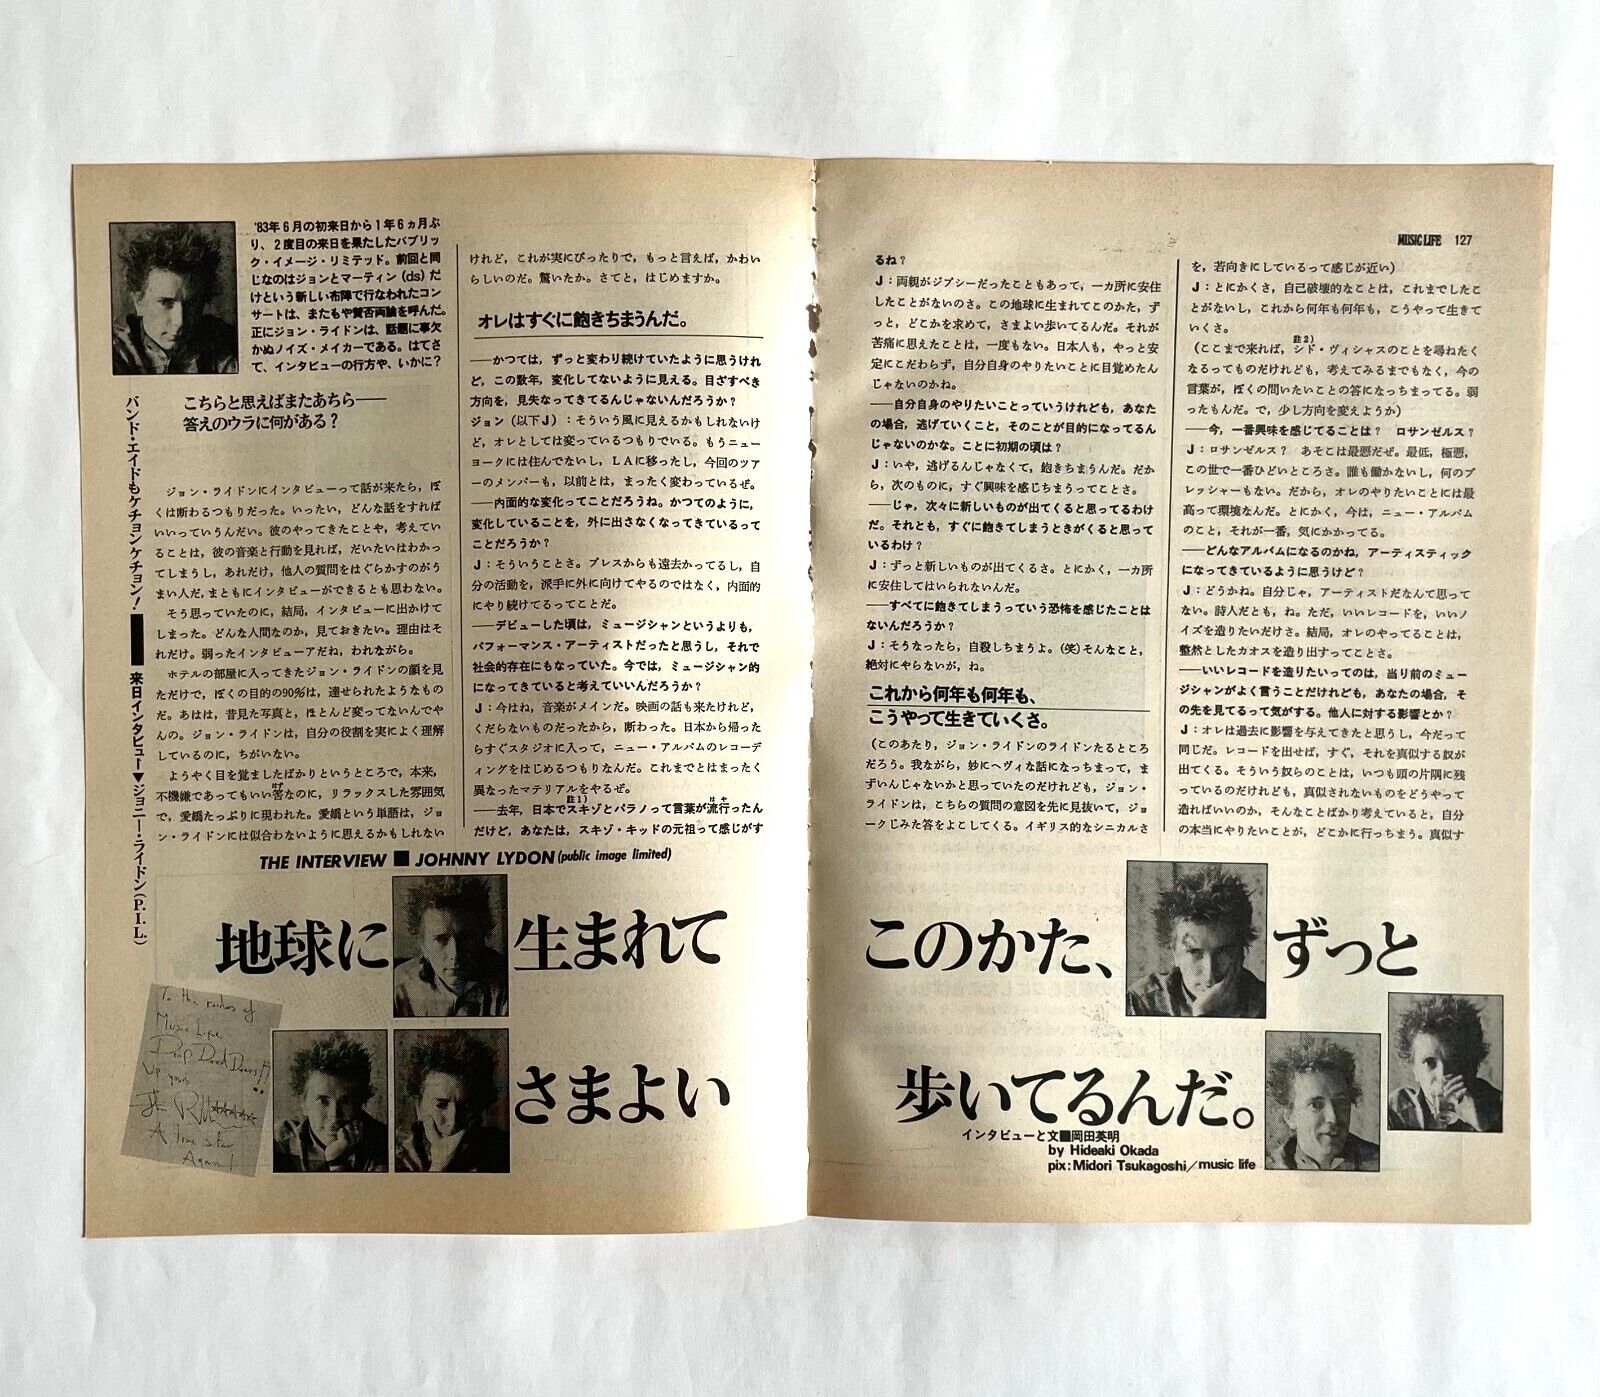 '83年6月の初来日から1年6ヵ月ぶ
り、2度目の来日を果たしたパブリッ
ク・イメージ・リミテッド。前回と同
じなのはジョンとマーティン(ds)だ
けという新しい布陣で行なわれたコン
サートは、またもや賛否両論を呼んだ。
正にジョン・ライドンは、話題に事欠
かぬノイズ・メイカーである。はてさ
て、インタビューの行方や、いかに?
バンド・エイドもケチョンケチョン!
来日インタビュー▼ジョニー・ライドン(P.I.L.)
こちらと思えばまたあちら――
答えのウラに何がある?
ジョン・ライドンにインタビューって話が来たら、ぼ
くは断わるつもりだった。いったい、どんな話をすれば
いいっていうんだい。彼のやってきたことや、考えてい
ることは、彼の音楽と行動を見れば、だいたいはわかっ
てしまうし、あれだけ、他人の質問をはぐらかすのがう
まい人だ。まともにインタビューができるとも思わない。
そう思っていたのに、結局、インタビューに出かけて
しまった。どんな人間なのか、見ておきたい。理由はそ
れだけ。弱ったインタビューアだね、われながら。
ホテルの部屋に入ってきたジョン・ライドンの顔を見
ただけで、ぼくの目的の90%は、達せられたようなもの
だ。あはは、昔見た写真と、ほとんど変ってないんでや
んの。ジョン・ライドンは、自分の役割を実によく理解
しているのに、ちがいない。
ようやく目を覚ましたばかりというところで、本来、
不機嫌であってもいい筈なのに、リラックスした雰囲気
で、愛嬌たっぷりに現われた。愛嬌という単語は、ジョ
ン・ライドンには似合わないように思えるかもしれない
けれど、これが実にぴったりで、もっと言えば、かわい
らしいのだ。驚いたか。さてと、はじめますか。
オレはすぐに飽きちまうんだ。
――かつては、ずっと変わり続けていたように思うけれ
ど、この数年、変化してないように見える。目ざすべき
方向を、見失なってきてるんじゃないんだろうか?
ジョン(以下J):そういう風に見えるかもしれないけ
ど、オレとしては変っているつもりでいる。もうニュー
ヨークには住んでないし、LAに移ったし、今回のツア
ーのメンバーも、以前とは、まったく変わっているぜ。
――内面的な変化ってことだろうね。かつてのように、
変化していることを、外に出さなくなってきているって
ことだろうか?
J:そういうことさ。プレスからも遠去かってるし、自
分の活動を、派手に外に向けてやるのではなく、内面的
にやり続けてるってことだ。
――デビューした頃は、ミュージシャンというよりも、
パフォーマンス・アーティストだったと思うし、それで
社会的存在にもなっていた。今では、ミュージシャン的
になってきていると考えていいんだろうか?
J:今はね、音楽がメインだ。映画の話も来たけれど、
くだらないものだったから、断わった。日本から帰った
らすぐスタジオに入って、ニュー・アルバムのレコーデ
ィングをはじめるつもりなんだ。これまでとはまったく
異なったマテリアルをやるぜ。
――去年、日本でスキゾとパラノって言葉が流行ったん
だけど、あなたは、スキゾ・キッドの元祖って感じがす
THE INTERVIEW ■ JOHNNY LYDON (public image limited)
地球に生まれて
さまよい
To the readers of
Music Life
Drop Dead Dears!!
Up yours
A true star
Again!
MUSIC LIFE 127
るね?
J:両親がジプシーだったこともあって、一カ所に安住
したことがないのさ。この地球に生まれてこのかた、ず
っと、どこかを求めて、さまよい歩いてるんだ。それが
苦痛に思えたことは、一度もない。日本人も、やっと安
定にこだわらず、自分自身のやりたいことに目覚めたん
じゃないのかね。
――自分自身のやりたいことっていうけれども、あなた
の場合、逃げていくこと、そのことが目的になってるん
じゃないのかな。ことに初期の頃は?
J:いや、逃げるんじゃなくて、飽きちまうんだ。だか
ら、次のものに、すぐ興味を感じちまうってことさ。
――じゃ、次々に新しいものが出てくると思ってるわけ
だ。それとも、すぐに飽きてしまうときがくると思って
いるわけ?
J:ずっと新しいものが出てくるさ。とにかく、一カ所
に安住してはいられないんだ。
――すべてに飽きてしまうっていう恐怖を感じたことは
ないんだろうか?
J:そうなったら、自殺しちまうよ。(笑)そんなこと、
絶対にやらないが、ね。
これから何年も何年も、
こうやって生きていくさ。
(このあたり、ジョン・ライドンのライドンたるところ
だろう。我ながら、妙にヘヴィな話になっちまって、ま
ずいんじゃないかと思っていたのだけれども、ジョン・
ライドンは、こちらの質問の意図を先に見抜いて、ジョ
ークじみた答をよこしてくる。イギリス的なシニカルさ
を、若向きにしているって感じが近い)
J:とにかくさ、自己破壊的なことは、これまでしたこ
とがないし、これから何年も何年も、こうやって生きて
いくさ。
(ここまで来れば、シド・ヴィシャスのことを尋ねたく
なるってものだけれども、考えてみるまでもなく、今の
言葉が、ぼくの問いたいことの答になっちまってる。弱
ったもんだ。で、少し方向を変えようか)
――今、一番興味を感じてることは? ロサンゼルス?
J:ロサンゼルス? あそこは最悪だぜ。最低、極悪、
この世で一番ひどいところさ。誰も働かないし、何のプ
レッシャーもない。だから、オレのやりたいことには最
高って環境なんだ。とにかく、今は、ニュー・アルバム
のこと、それが一番、気にかかってる。
――どんなアルバムになるのかね、アーティスティック
になってきているように思うけど?
J:どうかね。自分じゃ、アーティストだなんて思って
ない。詩人だとも、ね。ただ、いいレコードを、いいノ
イズを造りたいだけさ。結局、オレのやってることは、
整然としたカオスを造り出すってことさ。
――いいレコードを造りたいってのは、当り前のミュー
ジシャンがよく言うことだけれども、あなたの場合、そ
の先を見てるって気がする。他人に対する影響とか?
J:オレは過去に影響を与えてきたと思うし、今だって
同じだ。レコードを出せば、すぐ、それを真似する奴が
出てくる。そういう奴らのことは、いつも頭の片隅に残
っているのだけれども、真似されないものをどうやって
造ればいいのか、そんなことばかり考えていると、自分
の本当にやりたいことが、どこかに行っちまう。真似す
このかた、ずっと
歩いてるんだ。
インタビューと文■岡田英明
by Hideaki Okada
pix:Midori Tsukagoshi/music life